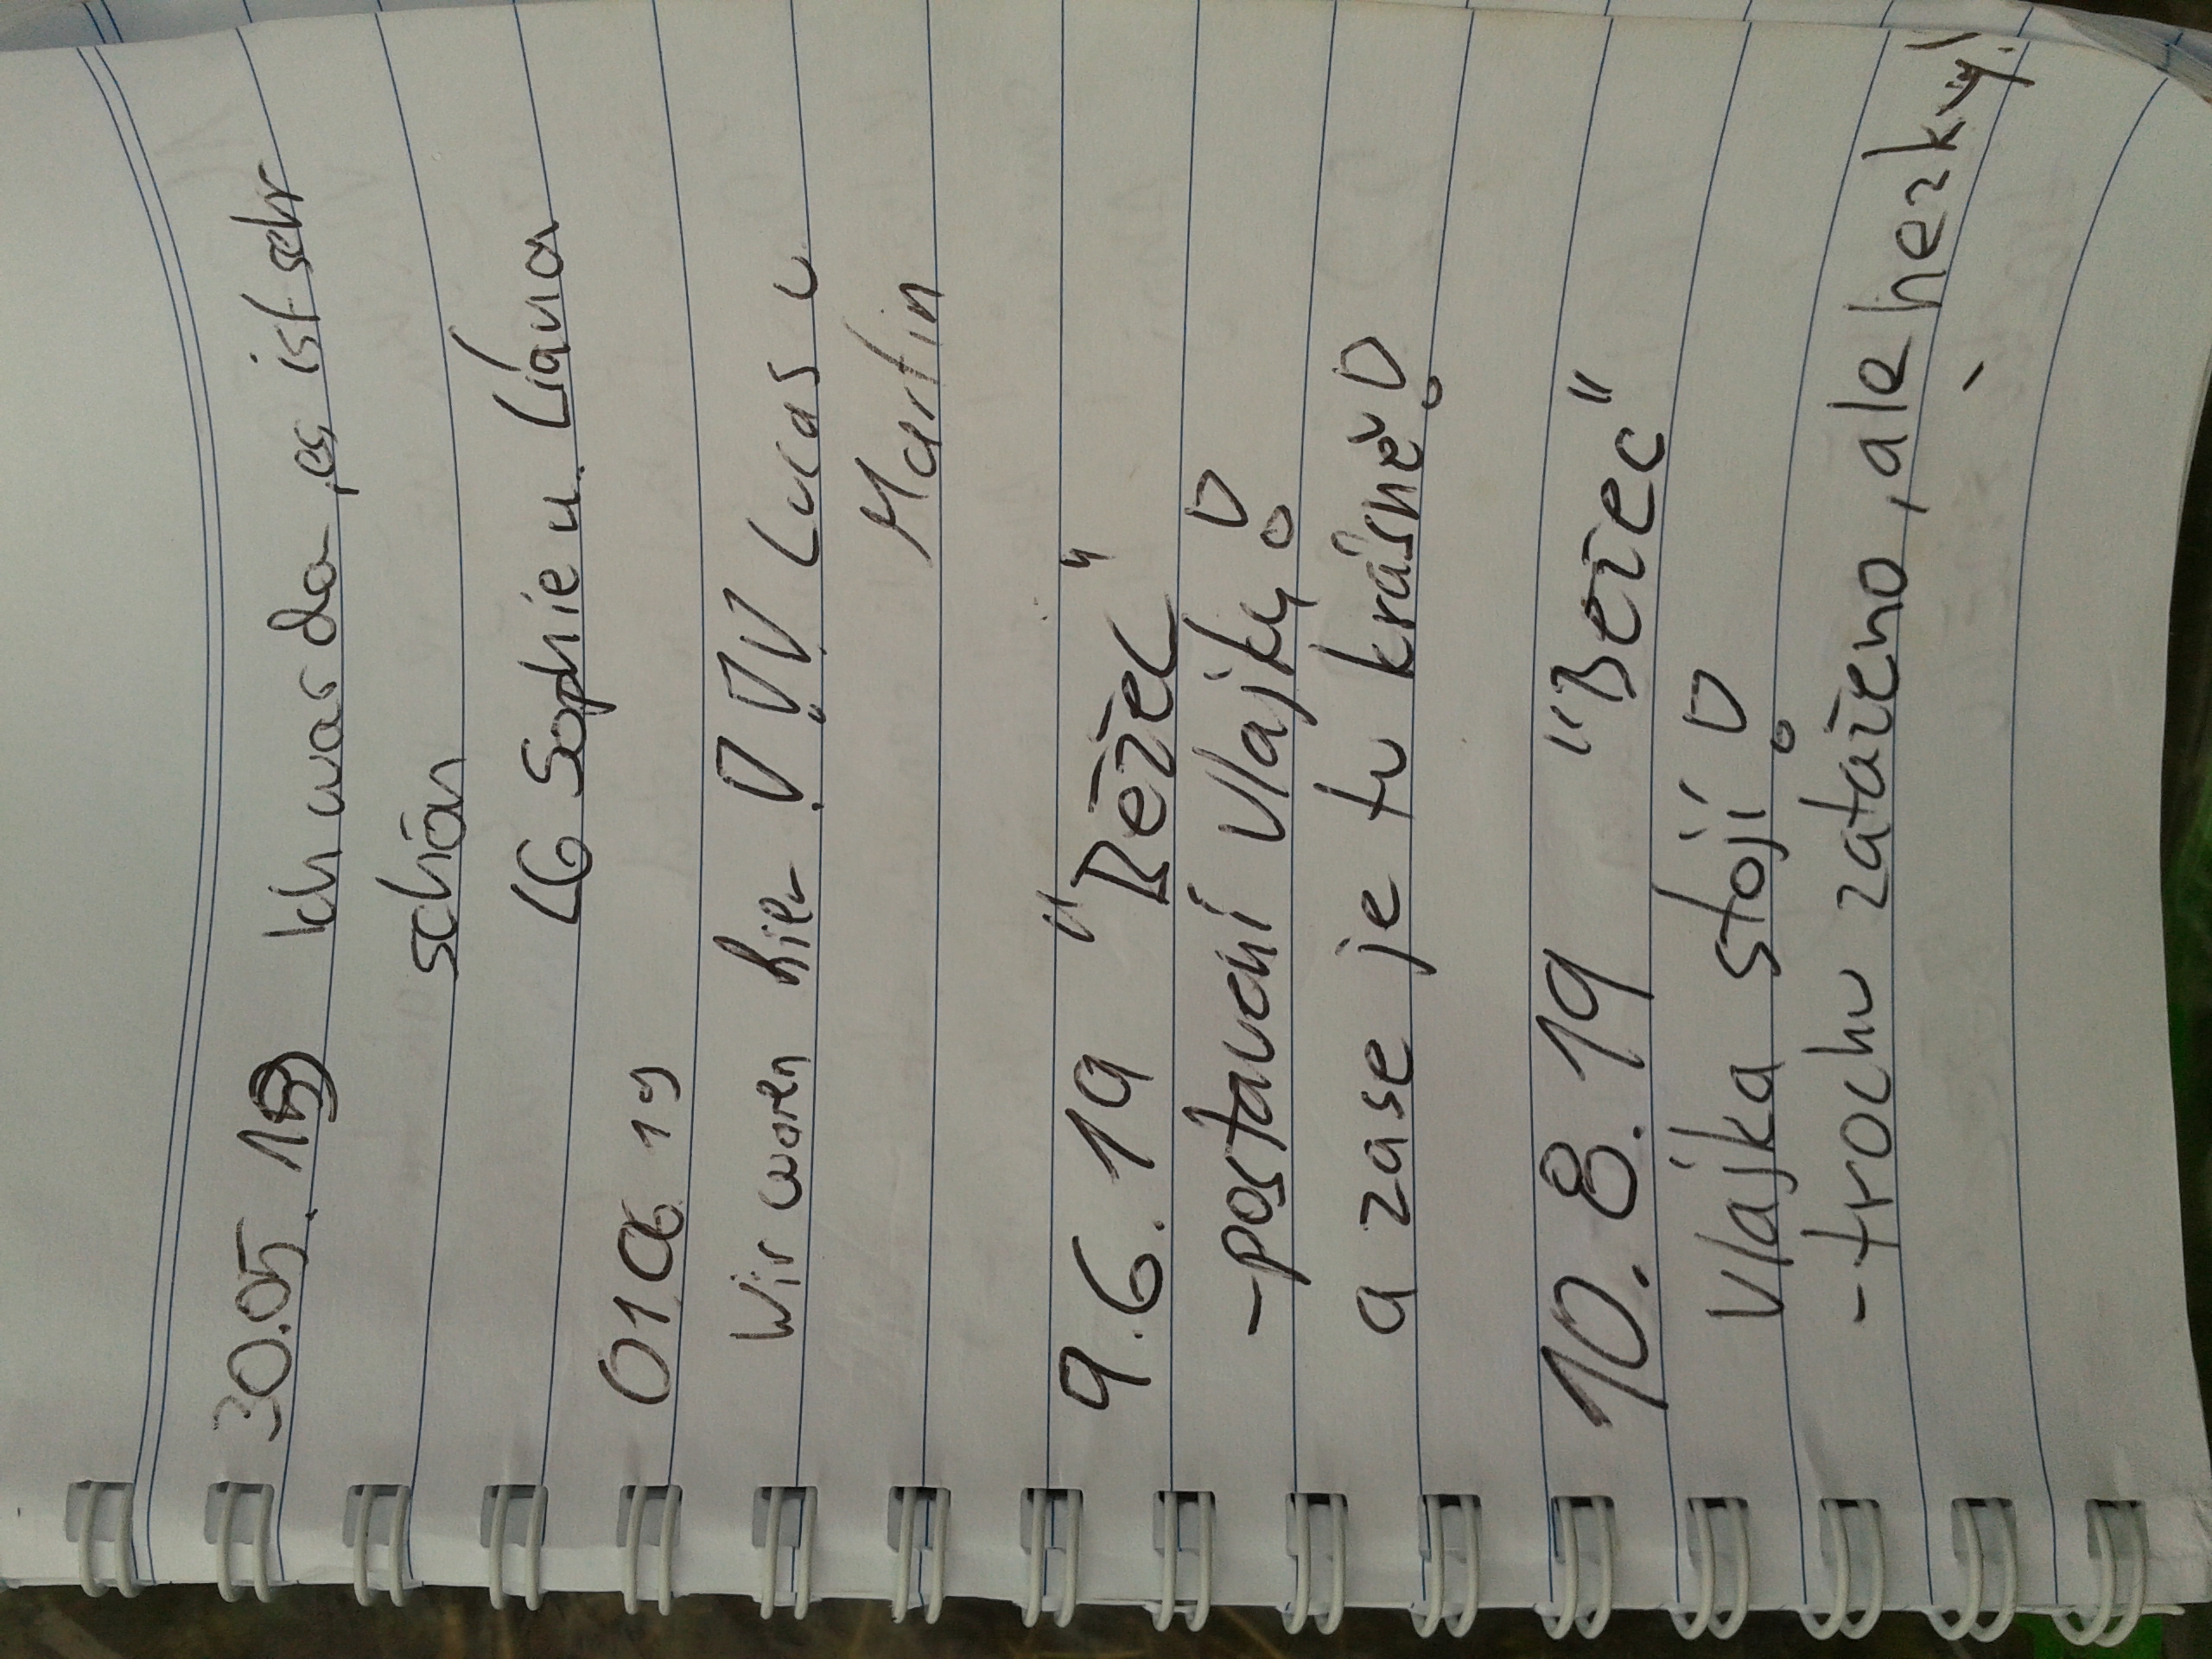 30.05.19 Ich war da, es ist sehr
schön
LG Sophie u. Liana
01 06 19
Wir waren hier !!! Lucas u
Martin
9.6.19 "Běžec"
-postavení vlajky!
a zase je tu krásně!
10.8.19 "Bežec"
Vlajka stojí!
-trochu zataženo, ale hezky!